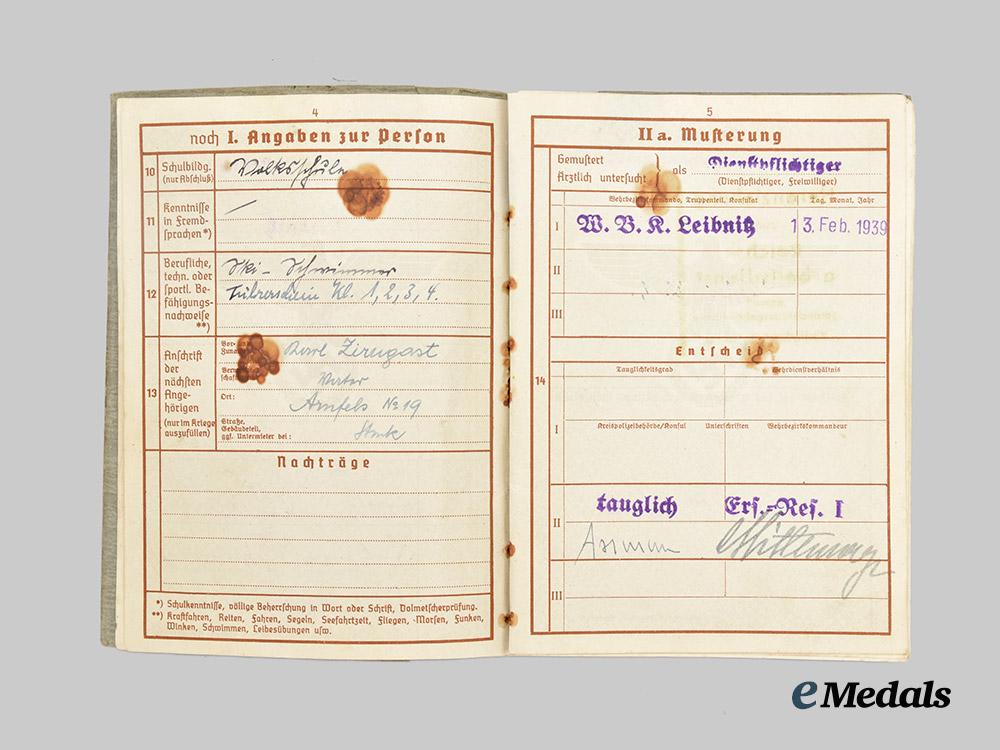 4
noch I. Angaben zur Person
10 Schulbildg. (nur Abschluß) Volksschule
11 Kenntnisse in Fremd- sprachen*) —
12 Berufliche, techn. oder sportl. Be- fähigungs- nachweise **)
Ski - Schwimmer
Führerschein Kl. 1, 2, 3, 4.
13 Anschrift der nächsten Ange- hörigen (nur im Kriege auszufüllen)
Zirngast
Ort: Arnfels No 19
Straße, Gebäudeteil, ggf. Untermieter bei:
Nachträge
*) Schulkenntnisse, völlige Beherrschung in Wort oder Schrift, Dolmetscherprüfung.
**) Kraftfahren, Reiten, Fahren, Segeln, Seefahrtzeit, Fliegen, Morsen, Funken,
Winken, Schwimmen, Leibesübungen usw.
5
II a. Musterung
Gemustert
Ärztlich untersucht als Dienstpflichtiger
(Dienstpflichtiger, Freiwilliger)
Wehrbezirkskommando, Truppenteil, Konsulat Tag, Monat, Jahr
I W. B. K. Leibnitz 13. Feb. 1939
II
III
Entscheid
14
Tauglichkeitsgrad Wehrdienstverhältnis
I
Kreispolizeibehörde/Konsul Unterschriften Wehrbezirkskommandeur
tauglich Ers.-Res. I
II
III
eMedals